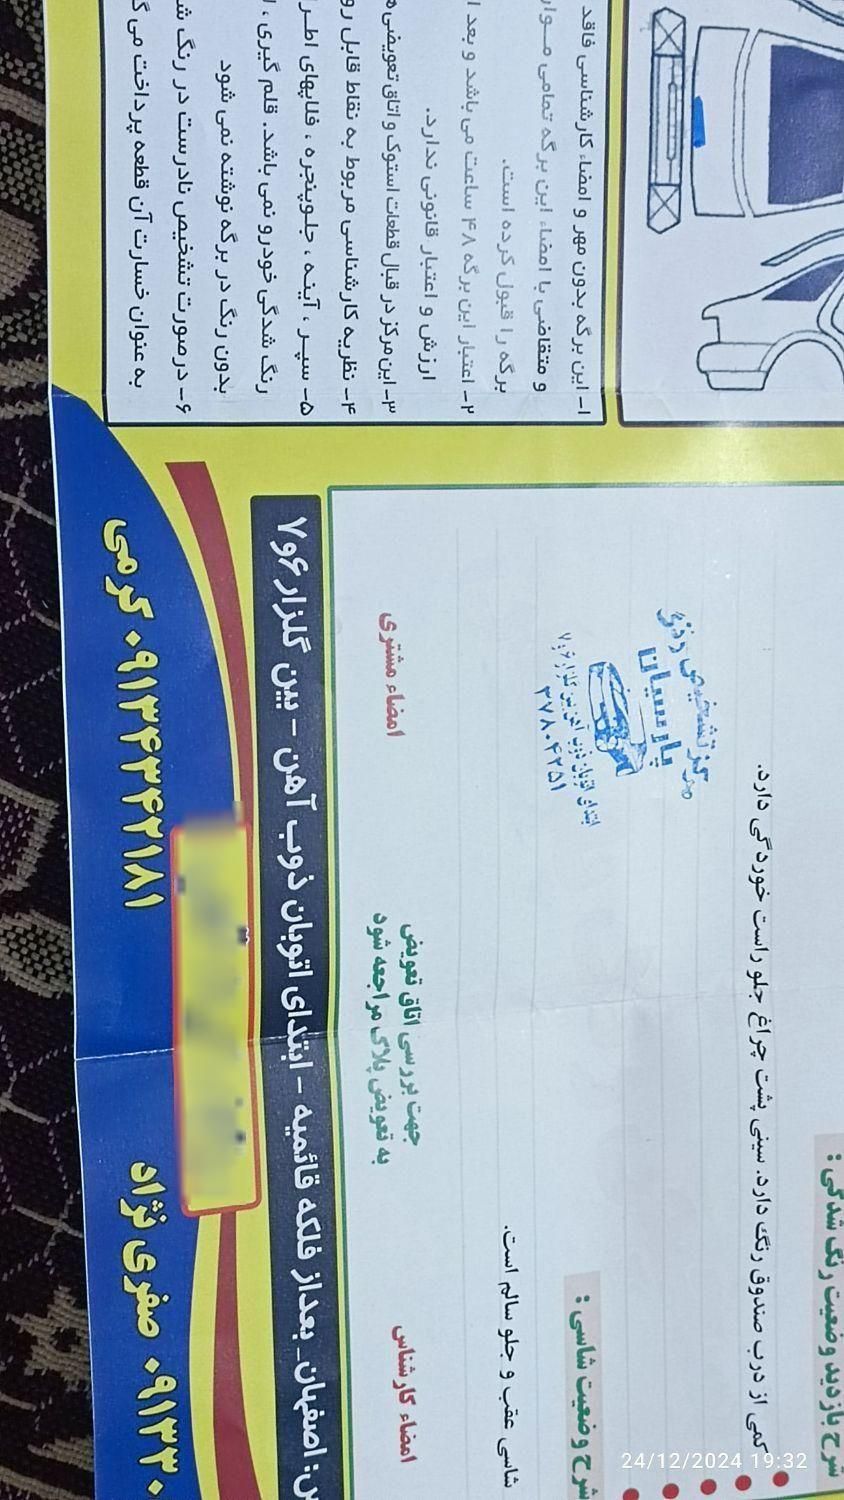 ۱- این برگه بدون مهر و امضاء کارشناسی فاقد
و متقاضی با امضاء این برگه تمامی موار
برگه را قبول کرده است.
۲- اعتبار این برگه ۴۸ ساعت می باشد و بعد ا
ارزش و اعتبار قانونی ندارد.
۳- این مرکز در قبال قطعات استوک و اتاق تعویضی
۴- نظریه کارشناسی مربوط به نقاط قابل رو
۵- سپر، آینه، جلوپنجره، فلاپهای اطر
رنگ شدگی خودرو نمی باشد. قلم گیری، ا
بدون رنگ در برگه نوشته نمی شود
۶- در صورت تشخیص نادرست در رنگ شد
به عنوان خسارت آن قطعه پرداخت می گ
شرح بازدید وضعیت رنگ شدگی :
کمی از درب صندوق رنگ دارد. سینی پشت چراغ جلو راست خوردگی دارد.
مرکز تشخیص رنگ
پارسیان
ابتدای اتوبان ذوب آهن بین گلزار ۶و۷
۳۷۸۰۴۲۵۱
شرح وضعیت شاسی :
شاسی عقب و جلو سالم است.
امضاء کارشناس
جهت بررسی اتاق تعویض
به تعویض پلاک مراجعه شود
امضاء مشتری
س: اصفهان_ بعداز فلکه قائمیه - ابتدای اتوبان ذوب آهن - بین گلزار ۶و۷
صفری نژاد ۰۹۱۳۳۰
۰۹۱۳۴۳۴۲۱۸۱ کرمی
24/12/2024 19:32